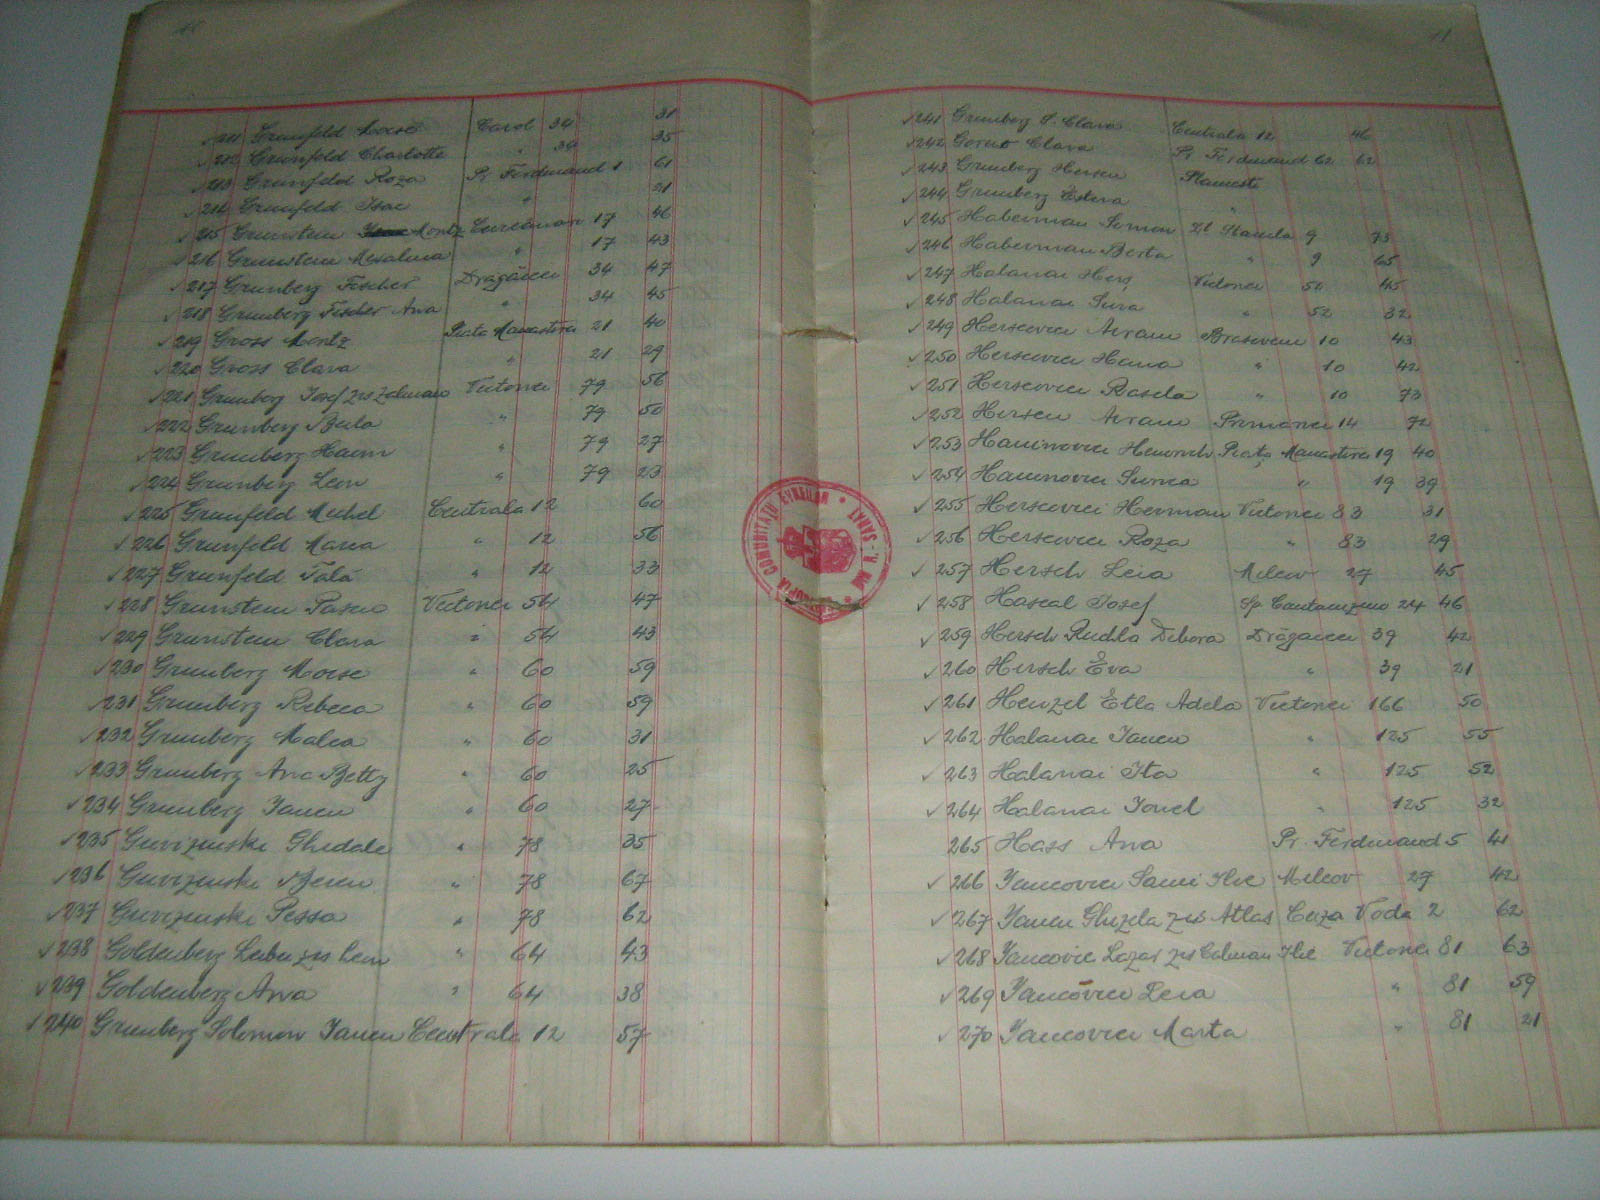 11
211 Grunfeld Moise Carol 34 31
212 Grunfeld Charlotte " 34 35
213 Grunfeld Roza Pr Ferdinand 1 61
214 Grunfeld Isac " 21
215 Grunstein Moritz 17 46
216 Grunstein " 17 43
217 Grunberg Fischer Drăgaicei 34 47
218 Grunberg Fischer Ana " 34 45
219 Gross Moritz Piata Manastirei 21 40
220 Gross Clara " 21 29
221 Grunberg Iosef zis Zelman Victoriei 79 56
222 Grunberg Beila " 79 50
223 Grunberg Haim " 79 27
224 Grunberg Leon " 79 23
225 Grunfeld Michel Centrala 12 60
226 Grunfeld Maria " 12 56
227 Grunfeld Tală " 12 33
228 Grunstein Pascu Victoriei 54 47
229 Grunstein Clara " 54 43
230 Grunberg Moise " 60 59
231 Grunberg Rebeca " 60 59
232 Grunberg Malca " 60 31
233 Grunberg Ana Betty " 60 25
234 Grunberg Iancu " 60 27
235 Gurizinski Ghidale " 78 35
236 Gurizinski Bercu " 78 67
237 Gurizinski Pessa " 78 62
238 Goldenberg Leibu zis " 64 43
239 Goldenberg Ana " 64 38
240 Grunberg Solomon Iancu Centrala 12 57
11
241 Grunberg S. Clara Centrala 12 46
242 Clara Pr Ferdinand 62 62
243 Grunberg Herscu
244 Grunberg Estera "
245 Haberman Simon 9 73
246 Haberman Berta " 9 65
247 Halanai Herș Victoriei 52 45
248 Halanai Sura " 52 32
249 Herscovici Avram Brasoveni 10 43
250 Herscovici Hana " 10 42
251 Herscovici Rasela " 10 73
252 Herscu Avram Primariei 14 72
253 Haimovici Heinrich Piața Manastirei 19 40
254 Haimovici Surica " 19 39
255 Herscovici Herman Victoriei 83 31
256 Herscovici Roza " 83 29
257 Hersch Leia Milcov 27 45
258 Hascal Iosef Sp Cantacuzino 24 46
259 Hersch Ruchla Debora Drăgaicei 39 42
260 Hersch Eva " 39 21
261 Henzel Etla Adela Victoriei 166 50
262 Halanai Iancu " 125 55
263 Halanai Ita " 125 52
264 Halanai Ionel " 125 32
265 Hass Ana Pr. Ferdinand 5 41
266 Iancovici Sami Ilie Milcov 27 42
267 Iancu Ghizela zis Atlas Cuza Voda 2 62
268 Iancovici Lazar zis Calman Ilie Victoriei 81 63
269 Iancovici Leia " 81 59
270 Iancovici Marta " 81 21
COMUNITATII EVREILOR RM. SARAT